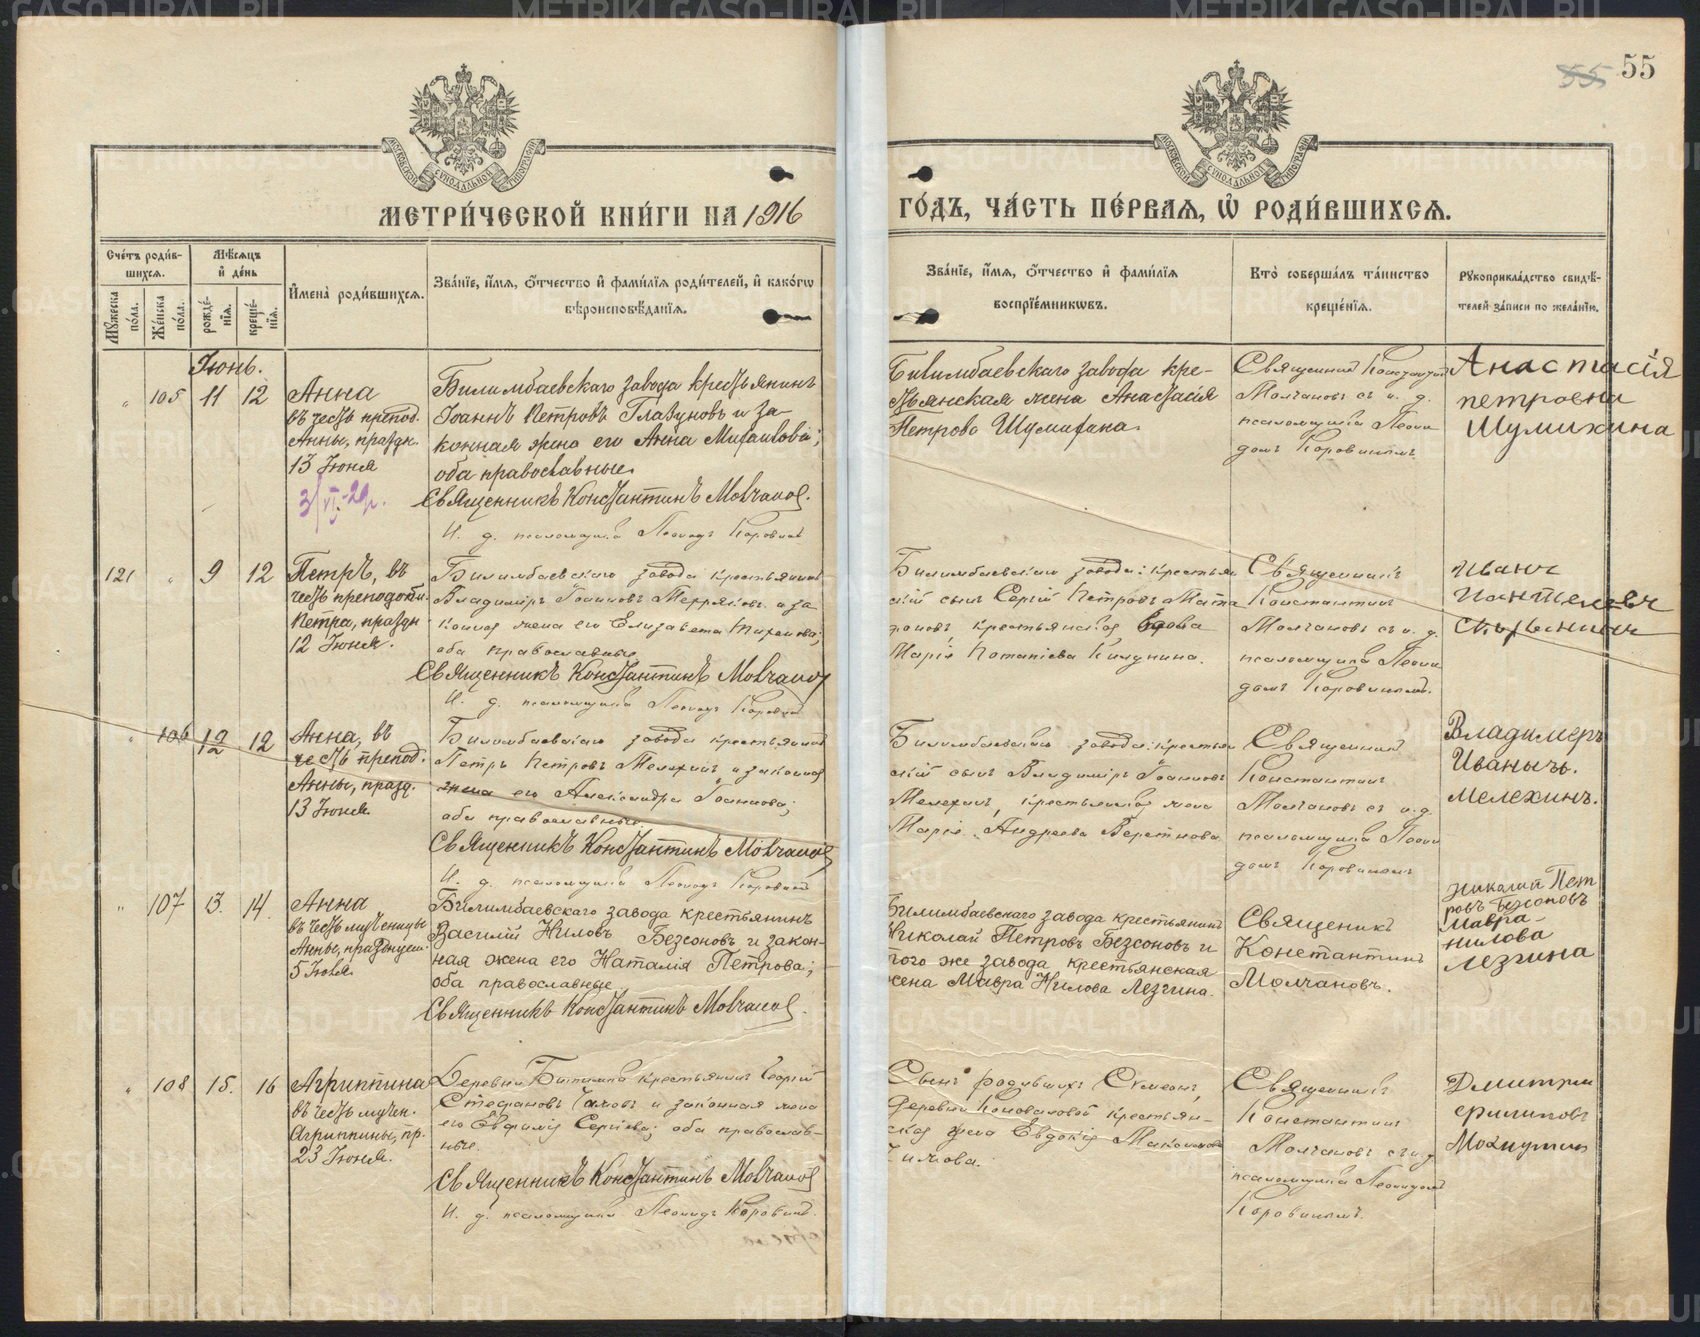 55 55
МЕТРИ́ЧЕСКОЙ КНИ́ГИ НА 1916
ГО́ДЪ, ЧА́СТЬ ПЕ́РВАЯ, Ѽ РОДИ́ВШИХСЯ.
МОСКОВСКОЙ СѴНОДАЛЬНОЙ ТИПОГРАФІИ
МОСКОВСКОЙ СѴНОДАЛЬНОЙ ТИПОГРАФІИ
Сче́тъ роди́в-
шихся.
Мѣ́сяцъ
и҆ де́нь
Мꙋ́жеска по́ла.
Же́нска по́ла.
рожде́-
нїя.
креще́-
нїя.
И҆мена̀ роди́вшихся.
Зва́нїе, и҆́мя, ѻ҆́тчество и҆ фами́лїя роди́телей, и҆ како́гѡ
вѣроисповѣ́данїя.
Зва́нїе, и҆́мя, ѻ҆́тчество и҆ фами́лїя
воспрїе́мникѡвъ.
Кто̀ соверша́лъ та́инство
креще́нїя.
Рꙋкоприкла́дство свидѣ́-
телей за́писи по жела́нїю.
Іюнь.
" 105 11 12
Анна
въ честь препод.
Анны, праздн.
13 Іюня
3/VI-29г.
Билимбаевскаго завода крестьянинъ
Іоаннъ Петровъ Глазуновъ и за-
конная жена его Анна Михаилова;
оба православные.
Священникъ Константинъ Молчановъ.
И. д. псаломщика Леонидъ Коровинъ
Билимбаевскаго завода кре-
стьянская жена Анастасія
Петрова Шумихина.
Священникъ Константинъ
Молчановъ съ и. д.
псаломщика Леони
домъ Коровинымъ
Анастасія
петровна
Шумихина
121 " 9 12
Петръ, въ
честь преподобн.
Петра, праздн
12 Іюня.
Билимбаевскаго завода крестьянинъ
Владиміръ Іоанновъ и за
конная жена его Елизавета;
оба православные
Священникъ Константинъ Молчановъ
И. д. псаломщика Леонидъ Коровинъ
Билимбаевскаго завода: крестьян
скій сынъ Сергій Петровъ
крестьянская вдова
Марія Потапіева
Священникъ
Константинъ
Молчановъ съ и. д.
псаломщика Леони
домъ Коровинымъ.
Иванъ
" 106 12 12
Анна, въ
честь препод.
Анны, празд.
13 Іюня.
Билимбаевскаго завода крестьянинъ
Петръ Петровъ Мелехинъ и законная
жена его Александра Іоаннова;
оба православные.
Священникъ Константинъ Молчановъ
И. д. псаломщика Леонидъ Коровинъ
Билимбаевскаго завода: крестьян
скій сынъ Владиміръ Іоанновъ
Мелехинъ, крестьянская жена
Марія Андреева
Священникъ
Константинъ
Молчановъ съ и. д.
псаломщика Леони
домъ Коровинымъ
Владимеръ
Иванычъ.
Мелехинъ.
" 107 13. 14.
Анна
въ честь мученицы
Анны, празднуем.
5 Іюля.
Билимбаевскаго завода крестьянинъ
Василій Ниловъ Безсоновъ и закон-
ная жена его Наталія Петрова;
оба православные
Священникъ Константинъ Молчановъ.
Билимбаевскаго завода крестьянинъ
Николай Петровъ Безсоновъ и
того же завода крестьянская
жена Мавра Нилова Лезгина.
Священикъ
Константинъ
Молчановъ.
Николай Пет
ровъ Безсоновъ
Мавра-
нилова
лезгина
" 108 15. 16
Агриппина
въ честь мучен.
Агриппины, пр.
23 Іюня.
Деревни Битимка крестьянинъ Георгій
Стефановъ и законная жена
его Евфимія Сергіева; оба православ-
ные.
Священникъ Константинъ Молчановъ
И. д. псаломщика Леонидъ Коровинъ.
Сынъ родившихъ Симеонъ,
деревни Коноваловой крестьян-
ская жена Евдокія Максимова
Священникъ
Константинъ
Молчановъ съ и. д
псаломщика Леонидомъ
Коровинымъ.
Дмитрии
филиповъ
METRIKI.GASO-URAL.RU